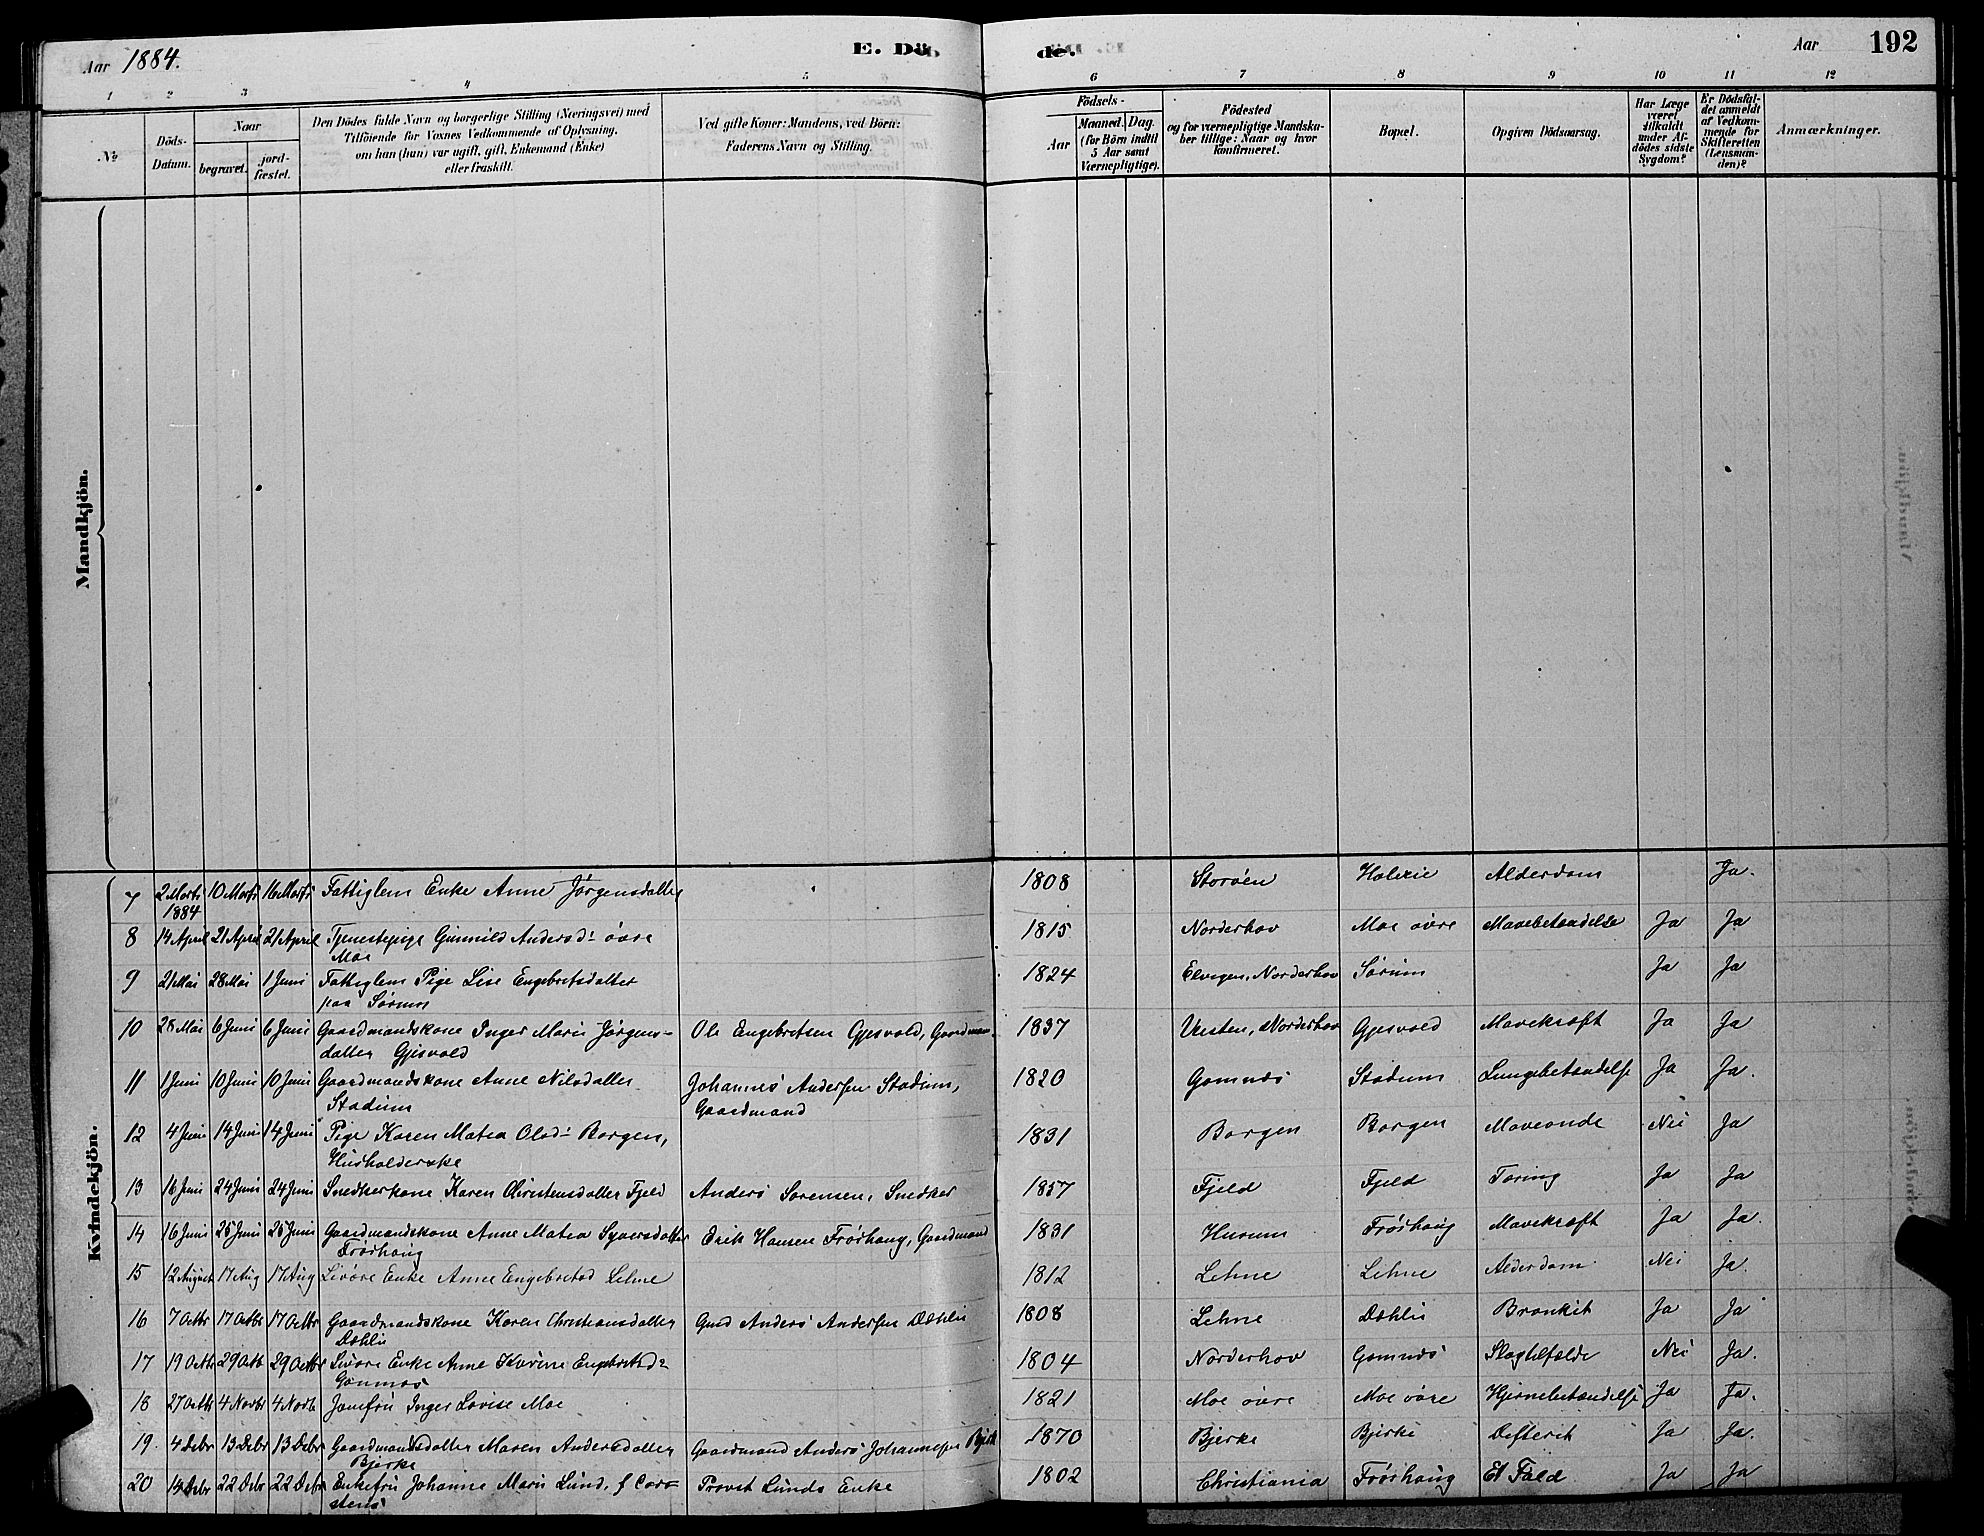 Aar 1884.
E. Dö
de.
Aar
192
1 2 3 4 5 6 7 8 9 10 11 12
№
Döds-
Datum.
Naar
begravet.
jord-
fæstet.
Den Dödes fulde Navn og borgerlige Stilling (Næringsvei) med
Tilföiende for Voxnes Vedkommende af Oplysning,
om han (hun) var ugift, gift, Enkemand (Enke)
eller fraskilt.
Ved gifte Koner: Mandens, ved Börn:
Faderens Navn og Stilling.
Födsels-
Aar
Maaned. Dag.
(for Börn indtil
5 Aar samt
Værnepligtige).
Födested
og for værnepligtige Mandska-
ber tillige: Naar og hvor
konfirmeret.
Bopæl.
Opgiven Dödsaarsag.
Har Læge
været
tilkaldt
under Af-
dödes sidste
Sygdom?
Er Dödsfal-
det anmeldt
af Vedkom-
mende for
Skifteretten
(Lensman-
den)?
Anmærkninger.
Mandkjön.
Kvindekjön.
7 2 Marts 10 Marts 16 Marts Fattiglem Enke Anne Jørgensdatter 1808 Storöen Holerie Alderdom Ja.
1884
8 14 April 21 April 21 April Tjenestepige Gunnild Andersd: övre 1815 Norderhov Moe övre Mavebetændelse Ja Ja
Moe
9 21 Mai 28 Mai 1 Juni Fattiglem Pige Lise Engebretsdatter 1824 Elvigen, Norderhov Sörum Ja Ja
paa Sörum
10 28 Mai 6 Juni 6 Juni Gaardmandskone Inger Marie Jørgens- Ole Engebretsen Gjesvold, Gaardman 1837 Vesten, Norderhov Gjesvold Mavekræft Ja Ja
datter Gjesvold
11 1 Juni 10 Juni 10 Juni Gaardmandskone Anne Nilsdatter Johannes Andersen Stadum, 1820 Gomnæs Stadum Lungebetændelse Ja Ja.
Stadum Gaardmand
12 4 Juni 14 Juni 14 Juni Pige Karen Matea Olsd: Borgen, 1831 Borgen Borgen Maveonde Nei Ja
Husholderske
13 16 Juni 24 Juni 24 Juni Snedkerkone Karen Christensdatter Fjeld Anders Sorensen, Snedker 1857 Fjeld Fjeld Tæring Ja Ja
14 16 Juni 25 Juni 25 Juni Gaardmandskone Anne Matea Syversdatter Erik Hansen Frøshaug, Gaardmand 1831 Hurum Frøshaug Mavekræft Ja Ja.
Frøshaug
15 12 August 17 Aug 17 Aug Livøre Enke Anne Engebretsd Lehne 1812 Lehne Lehne Alderdom Nei Ja.
16 7 Octbr 17 Octbr 17 Octbr Gaardmandskone Karen Christiansdatter Gmd Anders Andersen Dæhlie 1808 Lehne Dæhlie Bronkit Ja Ja
Dæhlie
17 19 Octbr 29 Octb 29 Octbr Livøre Enke Anne Karine Engebretsd: 1804 Norderhov Gomnæs Slagtilfælde Nei Ja.
Gomnæs
18 27 Octbr 4 Novbr 4 Novb Jomfru Inger Lovise Moe 1821 Moe övre Moe övre Hjernebetændelse Ja Ja.
19. 4 Debr 13 Debr 13 Debr Gaardmandsdatter Maren Andersdatter Gaardmand Anders Johannesen Bjerke 1870 Bjerke Bjerke Difterit Ja Ja.
Bjerke
20 14 Debr 22 Debr 22 Debr Enkefru Johanne Marie Lund, f Car- Provst Lunds Enke 1802 Christiania Frøshaug Et Fald Ja Ja
stens